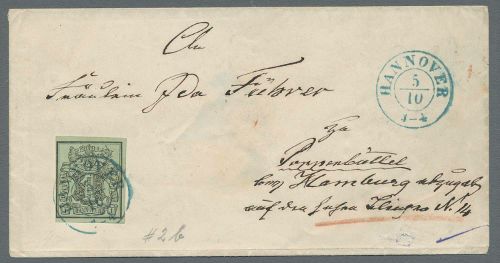 An
Fräulein Ida Führer
HANNOVER
5
10
1-4
Zu
Poppenbüttel
Hamburg abzugeb
auf den hohen N. 14
#2b